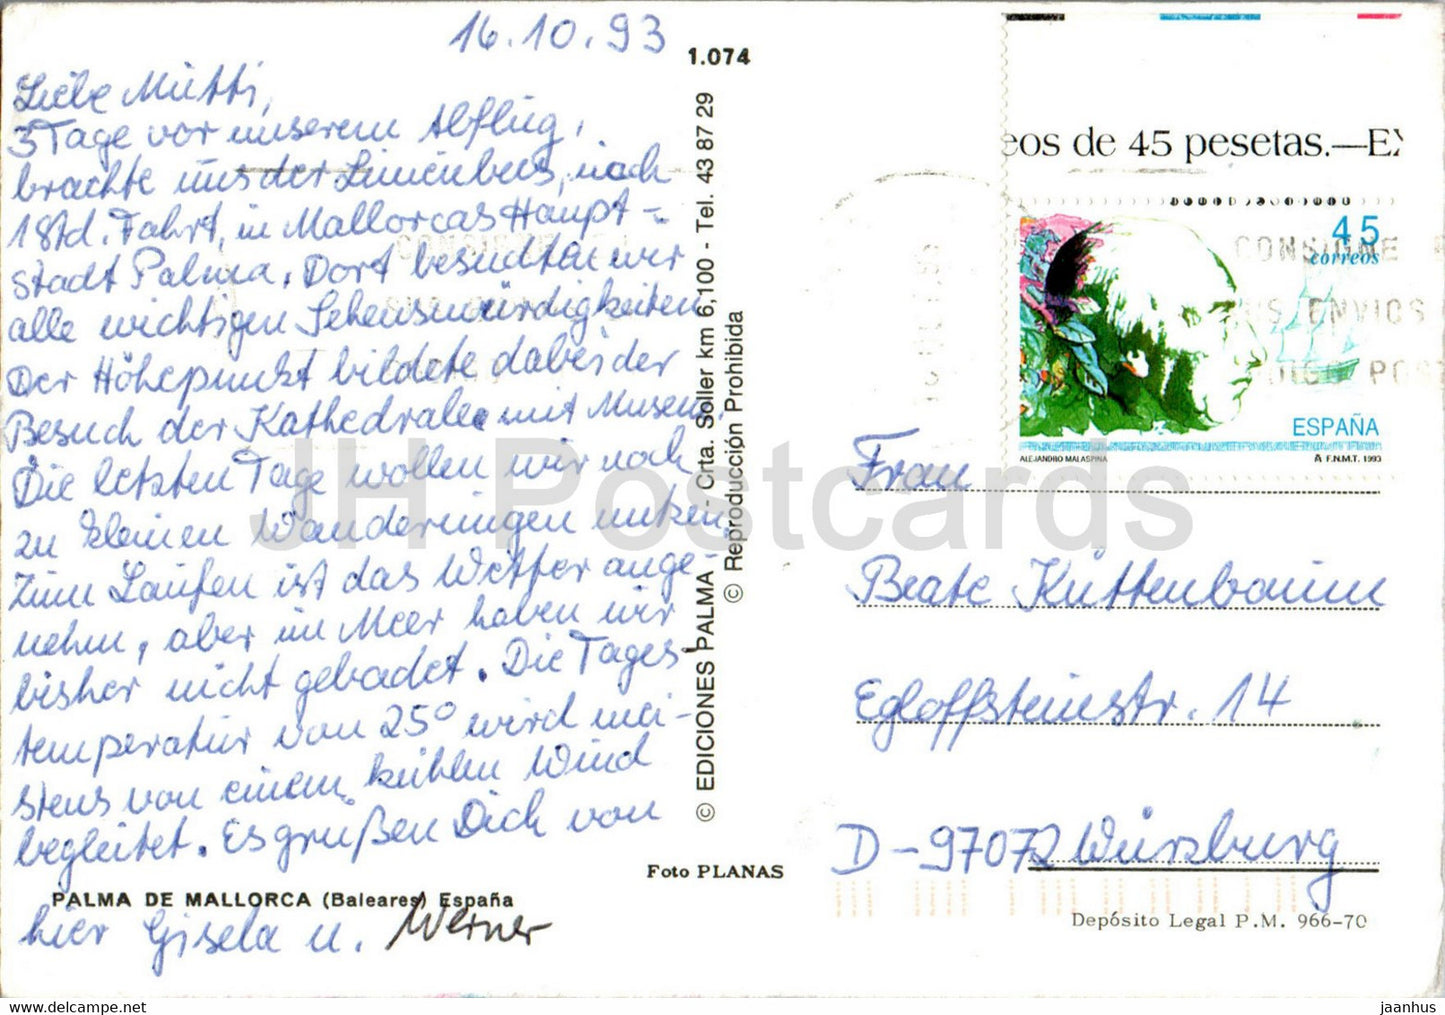 16.10.93
Liebe Mutti,
3 Tage vor unserem Abflug,
brachte uns der Linienbus, nach
1 Std. Fahrt, in Mallorcas Haupt-
stadt Palma. Dort besuchten wir
alle wichtigen Sehenswürdigkeiten.
Der Höhepunkt bildete dabei der
Besuch der Kathedrale mit Museum.
Die letzten Tage wollen wir noch
zu kleinen Wanderungen nutzen.
Zum Laufen ist das Wetter ange-
nehm, aber im Meer haben wir
bisher nicht gebadet. Die Tages
temperatur von 25° wird mei-
stens von einem kühlen Wind
begleitet. Es grüßen Dich von
PALMA DE MALLORCA (Baleares) España
hier Gisela u. Werner
1.074
© EDICIONES PALMA - Crta. Soller km 6,100 - Tel. 43 87 29
© Reproducción Prohibida
Foto PLANAS
eos de 45 pesetas.—EX
45
correos
CONSIGNE
SUS ENVIOS
CODIGO POST
ESPAÑA
ALEJANDRO MALASPINA
F.N.M.T. 1993
Frau
Beate Küttenbaum
Egloffsteinstr. 14
D-97072 Würzburg
Depósito Legal P.M. 966-70
JH Postcards
https://jhpostcards.com
jaanhus